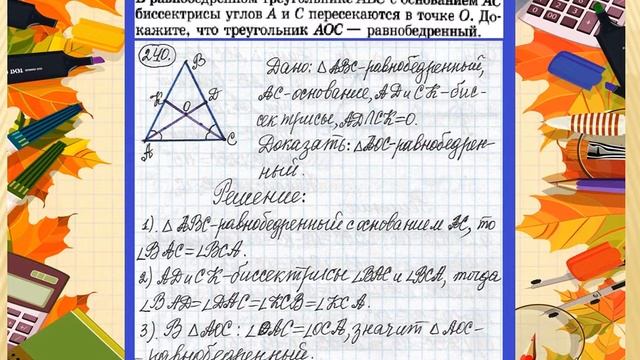 В равнобедренном треугольнике ABC с основанием AC
биссектрисы углов A и C пересекаются в точке O. До-
кажите, что треугольник AOC — равнобедренный.
240.
B
K
D
O
A
C
Дано: △ABC-равнобедренный,
AC-основание, AD и CK-бис-
сектрисы, AD∩CK=O.
Доказать: △AOC-равнобедрен-
ный.
Решение:
1). △ABC-равнобедренный с основанием AC, то
∠BAC=∠BCA.
2) AD и CK-биссектрисы ∠BAC и ∠BCA, тогда
∠BAD=∠DAC=∠KCB=∠KCA.
3). В △AOC: ∠OAC=∠OCA, значит △AOC-
равнобедренный.